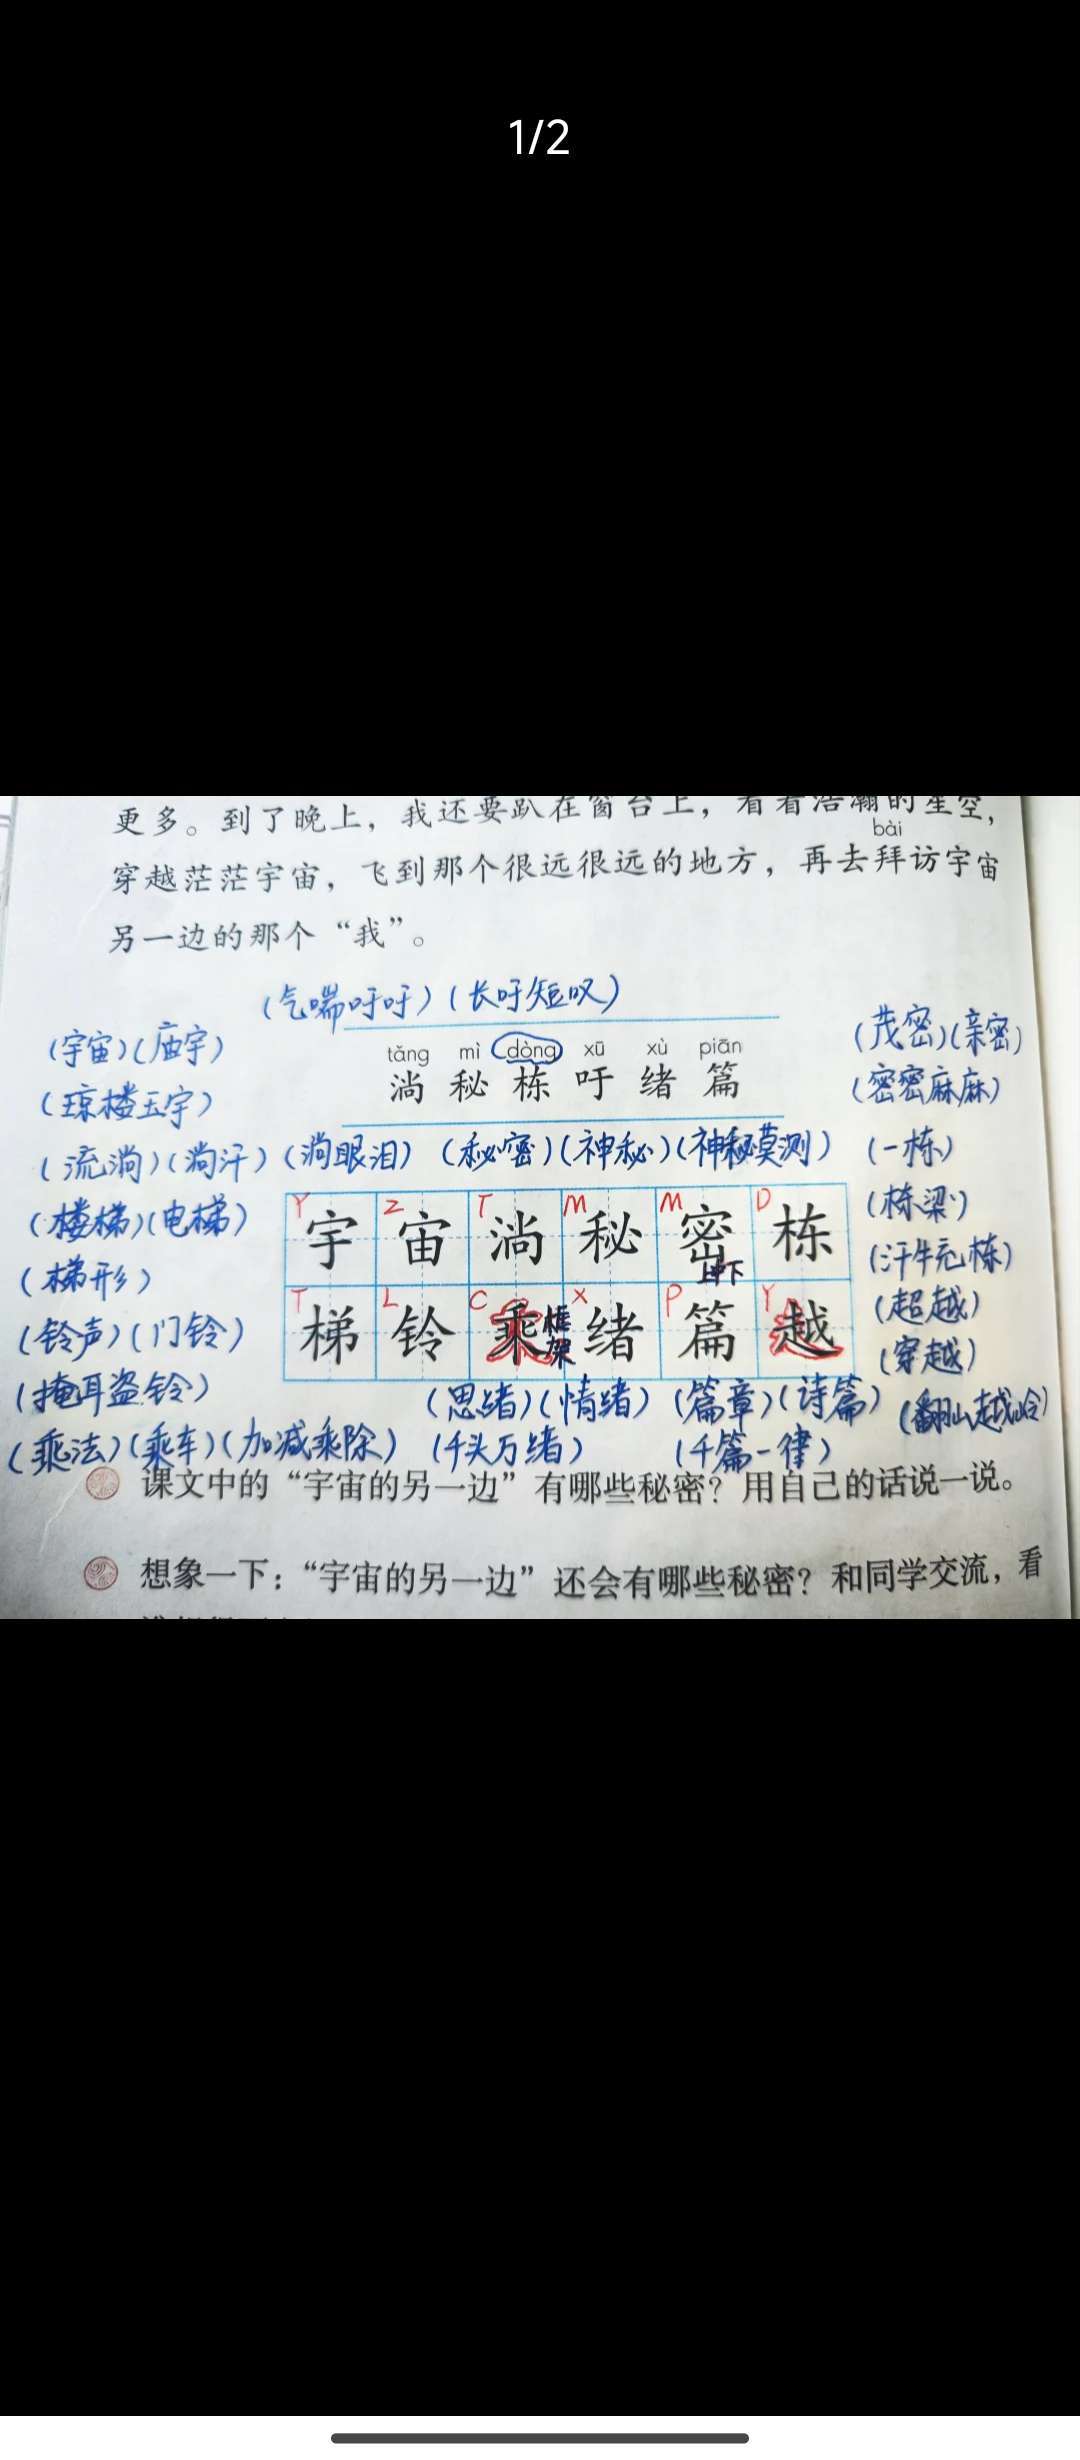 1/2
更多。到了晚上，我还要趴在窗台上，看着浩瀚的星空，
bài
穿越茫茫宇宙，飞到那个很远很远的地方，再去拜访宇宙
另一边的那个“我”。
(气喘吁吁)(长吁短叹)
(宇宙)(庙宇)
(茂密)(亲密)
tǎng mì dòng xū xù piān
淌 秘 栋 吁 绪 篇
(琼楼玉宇)
(密密麻麻)
(流淌)(淌汗)(淌眼泪) (秘密)(神秘)(神秘莫测)
(一栋)
Y Z T M M D
宇 宙 淌 秘 密 栋
上中下
(楼梯)(电梯)
(栋梁)
(梯形)
(汗牛充栋)
T L C X P Y
梯 铃 乘 绪 篇 越
框架
(铃声)(门铃)
(超越)
(穿越)
(掩耳盗铃)
(思绪)(情绪) (篇章)(诗篇) (翻山越岭)
(乘法)(乘车)(加减乘除) (千头万绪) (千篇一律)
课文中的“宇宙的另一边”有哪些秘密？用自己的话说一说。
想象一下：“宇宙的另一边”还会有哪些秘密？和同学交流，看